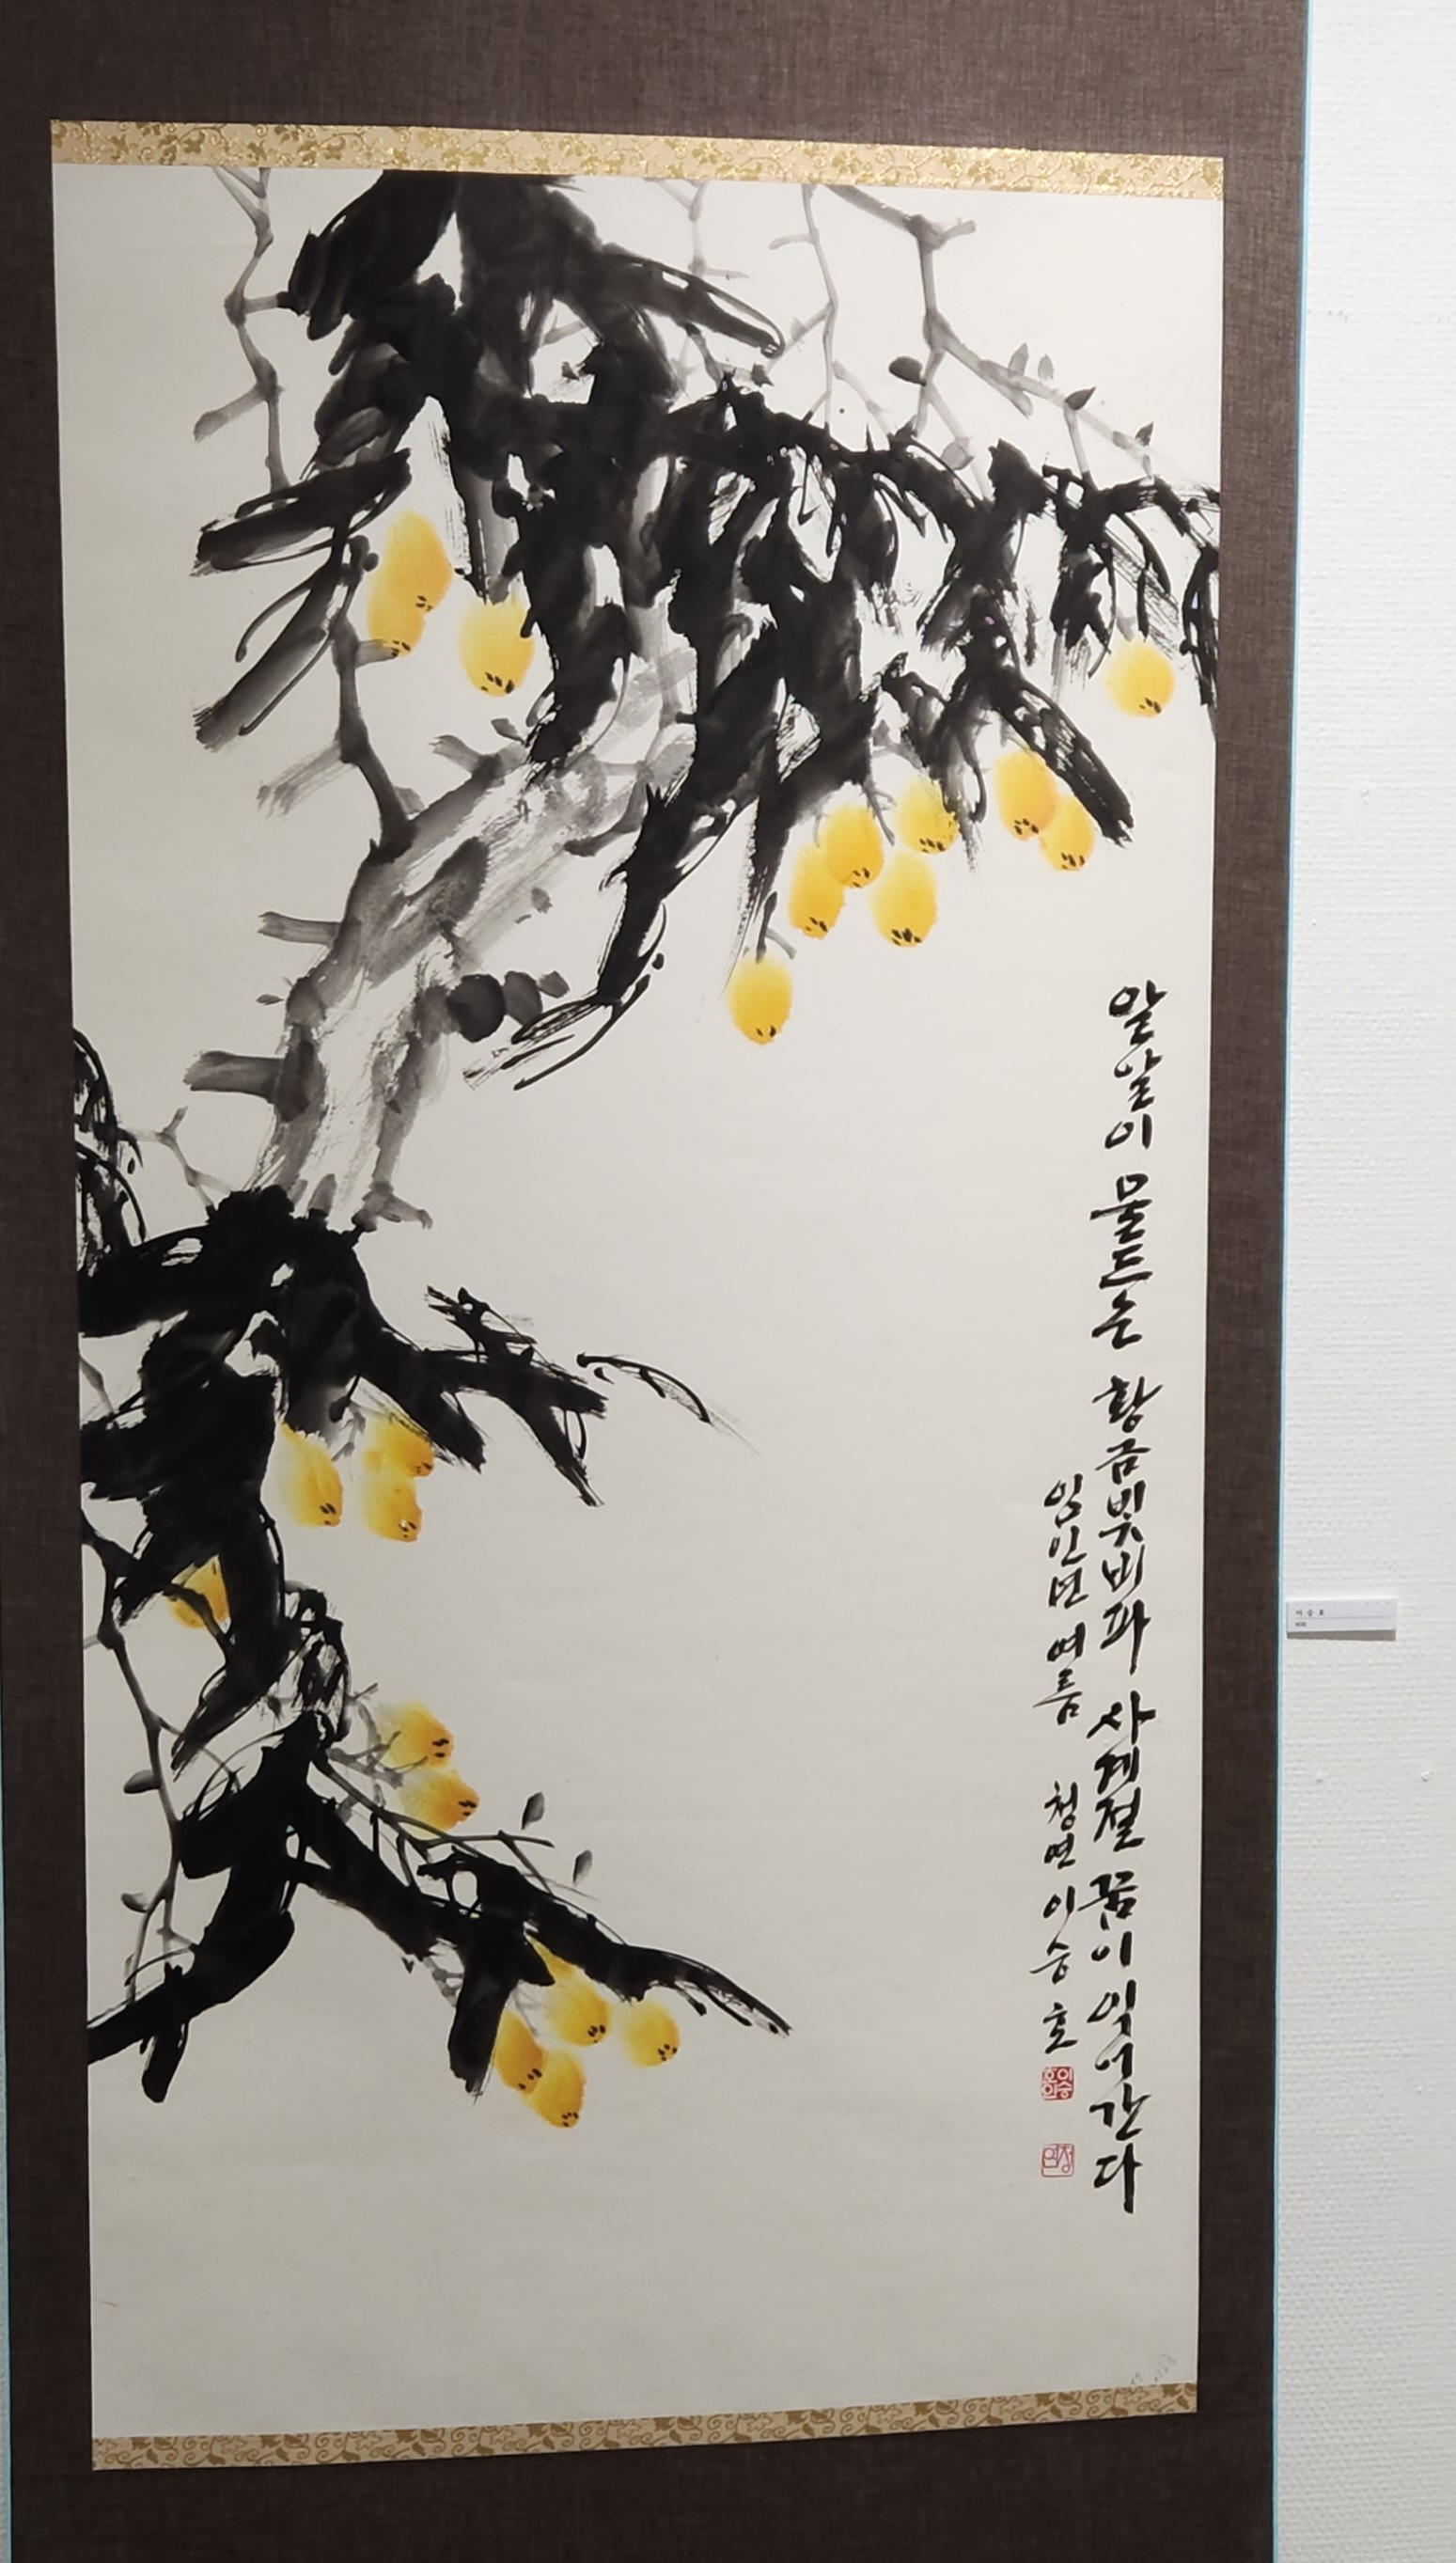 알알이 물드는 황금빛 비파 사계절 꿈이 익어간다
임인년 여름 청면 이승호
이승호